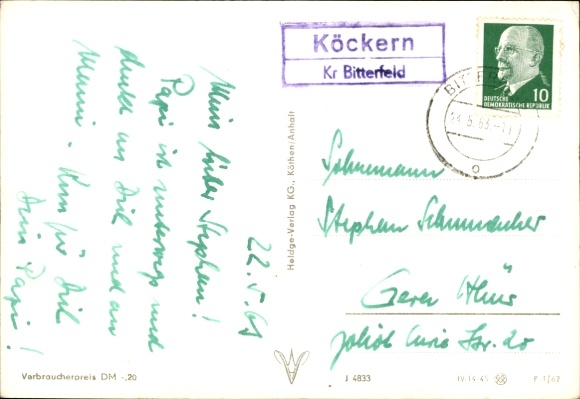 Köckern
Kr Bitterfeld
10
DEUTSCHE
DEMOKRATISCHE REPUBLIK
BITTERF
22.5.63
Mein lieber Stephan!
Papi ist unterwegs und
denkt an Dich und an
Mummi. Kuss für Dich
Dein Papi!
Stephan Schumacher
Gera
Joliot Curie Str. 20
Heldge-Verlag KG., Köthen/Anhalt
Verbraucherpreis DM -,20
J 4833
IV-14-45
P 1/62